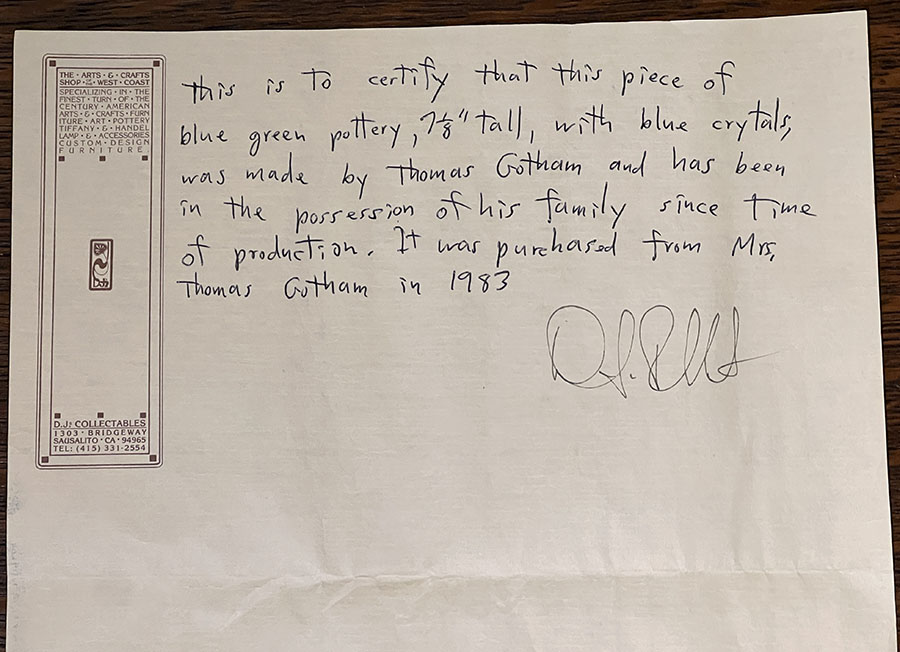 THE · ARTS · & · CRAFTS
SHOP OF THE WEST · COAST
SPECIALIZING · IN · THE
FINEST · TURN · OF · THE
CENTURY · AMERICAN
ARTS · & · CRAFTS · FURN
ITURE · ART · POTTERY
TIFFANY · & · HANDEL
LAMP · & · ACCESSORIES
CUSTOM · DESIGN
FURNITURE.
D.J's COLLECTABLES
1303 · BRIDGEWAY
SAUSALITO · CA · 94965
TEL: (415) 331-2554
This is to certify that this piece of
blue green pottery, 7 1/8" tall, with blue crytals,
was made by Thomas Gotham and has been
in the possession of his family since time
of production. It was purchased from Mrs,
Thomas Gotham in 1983